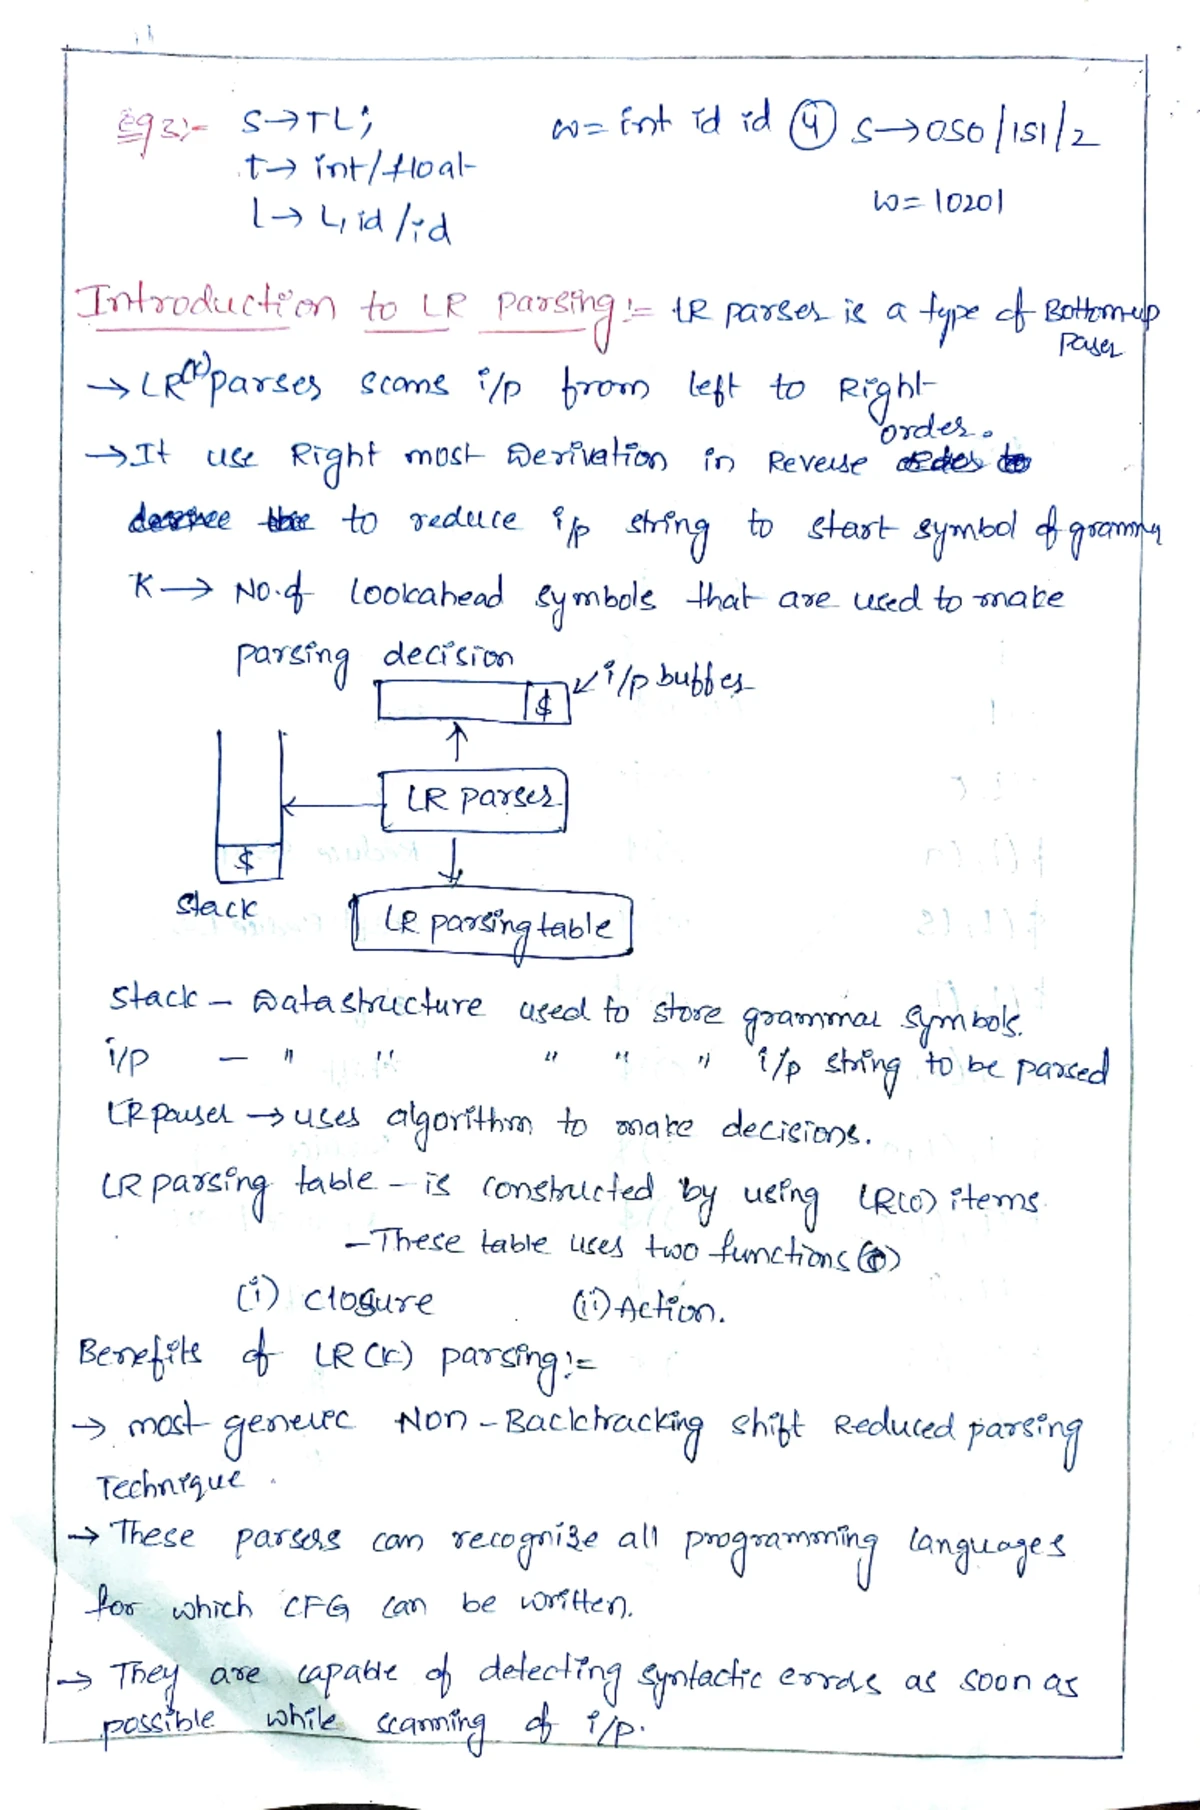 Eg 3):- S→TL; w= int id id ④ S→0S0/1S1/2
t→ int/float
w=10201
l→ L, id/id
Introduction to LR parsing:- LR parser is a type of Bottomup
Paser
→LR(K) parses scans i/p from left to Right
order.
→It use Right most Derivation in Reverse
to reduce i/p string to start symbol of gramma
K→ No.of lookahead symbols that are used to make
parsing decision
i/p buffer
$
LR parser
$
stack
LR parsing table
Stack - Datastructure used to store grammar symbols.
i/p - " " " " " i/p string to be parsed
LR parser → uses algorithm to make decisions.
LR parsing table - is constructed by using LR(0) items.
-These table uses two functions
(i) closure (ii) Action.
Benefits of LR (K) parsing:=
→ most generic Non-Backtracking shift Reduced parsing
Technique.
→ These parsers can recognize all programming languages
for which CFG can be written.
→ They are capable of detecting syntactic errors as soon as
possible while scanning of i/p.